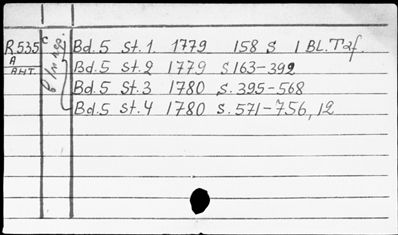 R535 c Bd.5 St.1. 1779 158 S 1 Bl. Taf.
A Bd.5 St.2 1779 S 163-392
АНТ. Bd.5 St.3 1780 S. 395-568
Bd.5 St.4 1780 S. 571-756, 12